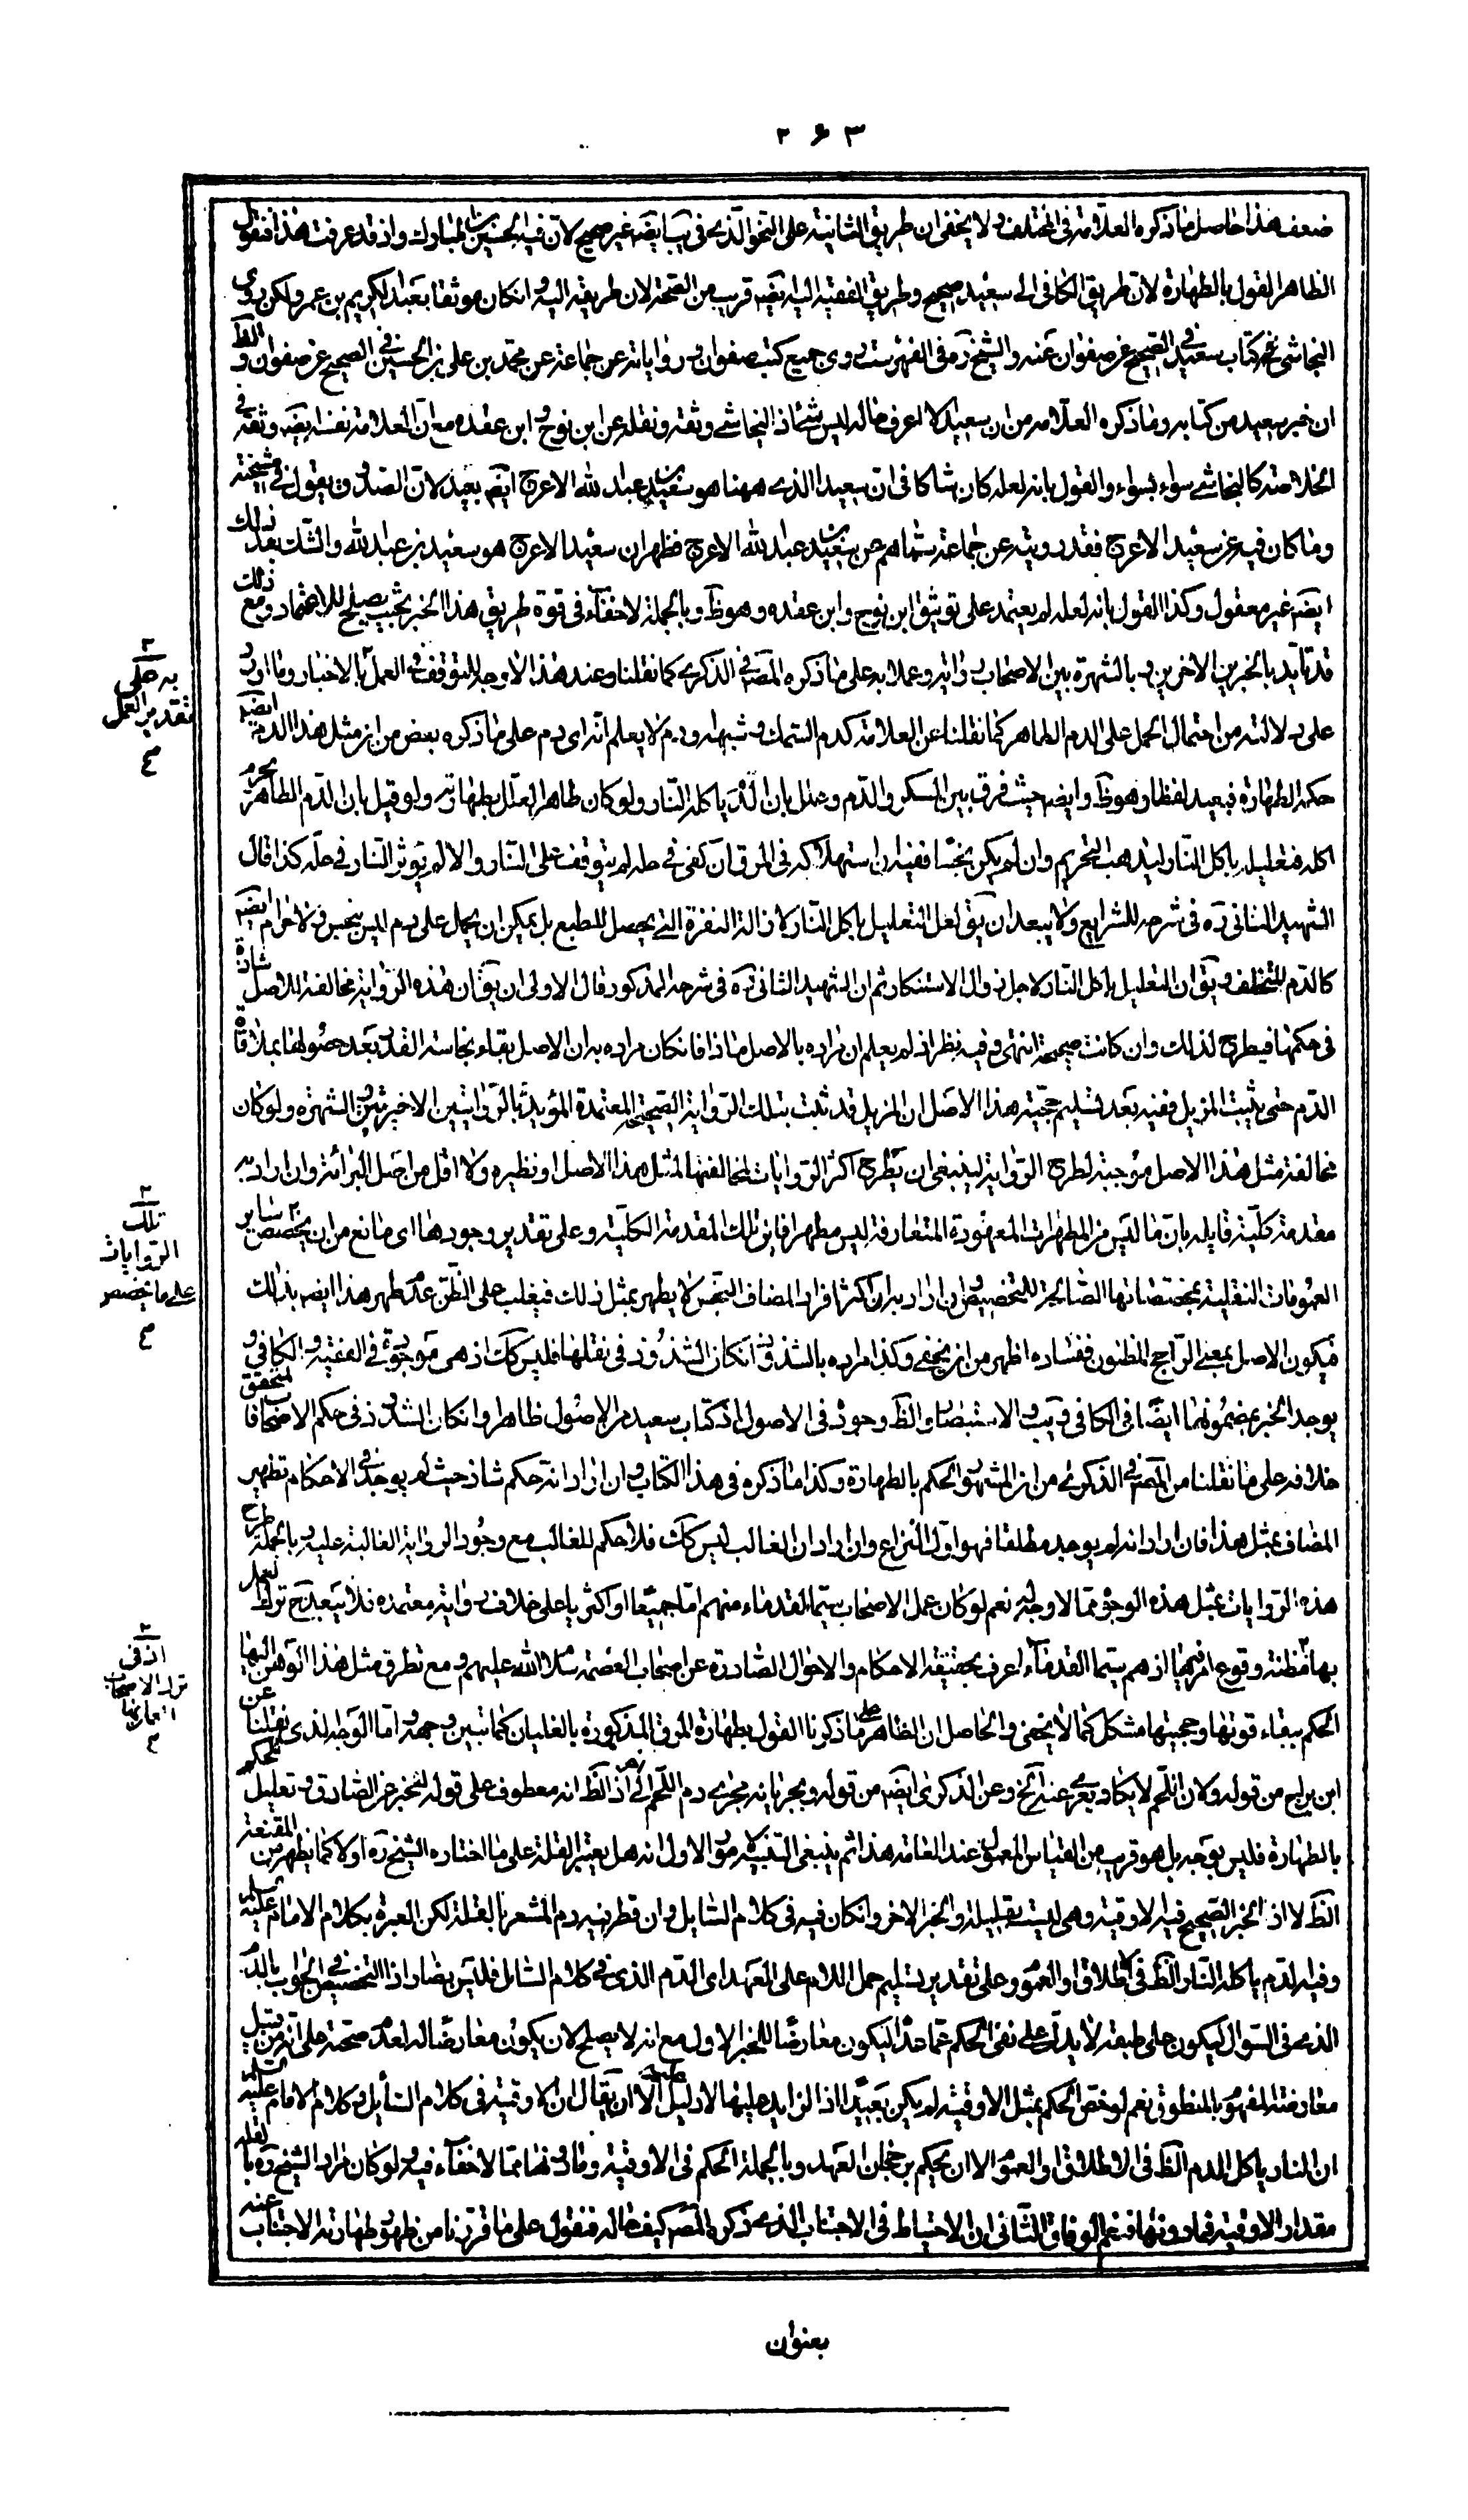 ٢٦٣
ضعف هذا حاصل ما ذكره العلامة في المختلف ولا يخفى ان طريق الثانية على النحو الذي في يب ايضه غير صحيح لان فيه الحسين بن المبارك واذ قد عرفت هذا فنقول
الظاهر القول بالطهارة لان طريق الكافي الى سعيد صحيح وطريق الفقيه اليه ايضه قريب من الصحة لان طريقه اليه وان كان موثقا بعبد الكريم بن عمرو لكن روى
النجاشي كتاب سعيد في الصحيح عن صفوان عنه والشيخ ره في الفهرست روى جميع كتب صفوان ورواياته عن جماعة عن محمد بن علي بن الحسين في الصحيح عن صفوان والظ
ان خبر سعيد من كتابه وما ذكره العلامه من ان سعيدا لا اعرف حاله ليس بشئ اذ النجاشي وثقه ونقله عن ابن نوح وابن عقده مع ان العلامة نفسه ايضه وثقه في
الخلاصة كالنجاشي سواء بسواء والقول بانه لعله كان شاكا في ان سعيدا الذي ههنا هو سعيد بن عبد الله الاعرج ايضه بعيد لان الصدوق يقول في مشيخته
وما كان فيه عن سعيد الاعرج فقد رويته عن جماعة سماهم عن سعيد بن عبد الله الاعرج فظهر ان سعيدا الاعرج هو سعيد بن عبد الله والشك بعد ذلك
ايضه غير معقول وكذا القول بانه لعله لم يعتمد على توثيق ابن نوح وابن عقده وهو ظ وبالجملة لا خفاء في قوة طريق هذا الخبر بحيث يصلح للاعتماد ومع ذلك
قد تايد بالخبرين الاخرين وبالشهرة بين الاصحاب رواية وعملا به على ما ذكره المصه في الذكرى كما نقلنا وعند هذا لا وجه للتوقف في العمل بالاخبار وما اورد
على دلالته من احتمال الحمل على الدم الطاهر كما نقلنا عن العلامة كدم السمك وشبهه ودم لا يعلم انه اي دم على ما ذكره بعض من ان مثل هذا الدم ايضه
حكمه الطهارة فبعيد لفظا وهو ظ وايضه حيث فرق بين المسكر والدم وعلل بان الدم ياكله النار ولو كان طاهرا لعلل بطهارته ولو قيل بان الدم الطاهر يحرم
اكله فتعليله باكل النار ليذهب التحريم وان لم يكن نجسا ففيه ان استهلاكه في المرق ان كفى في حله لم يتوقف على النار والا لم يؤثر النار في حله كذا قال
الشهيد الثاني ره في شرحه للشرايع ولا يبعد ان يق لعل التعليل باكل النار لازالة النفرة التي يحصل للطبع بل يمكن ان يحمل على دم ليس بنجس ولا حرام ايضه
كالدم المتخلف ويق ان التعليل باكل النار لاجل زوال الاستنكار ثم ان الشهيد الثاني ره في شرحه المذكور قال الاولى ان يق ان هذه الرواية مخالفة للاصل شاذة
في حكمها فيطرح لذلك وان كانت صحيحة انتهى وفيه نظر اذ لم يعلم ان مراده بالاصل ماذا فان كان مراده به ان الاصل بقاء نجاسة القدر بعد حصولها بملاقاة
الدم حتى يثبت المزيل ففيه بعد تسليم حجية هذا الاصل ان المزيل قد ثبت بتلك الرواية الصحيحة المعتمدة المؤيدة بالروايتين الاخيرتين والشهرة ولو كان
مخالفة مثل هذا الاصل موجبة لطرح الرواية لينبغي ان يطرح اكثر الروايات لمخالفتها لمثل هذا الاصل او نظيره ولا اقل من اصل البرائة وان اراد به
مقدمة كلية قايلة بان ما ليس من المطهرات المعهودة المتعارفة ليس مطهرا فاين تلك المقدمة الكلية وعلى تقدير وجودها اي مانع من ان يخصص سائر
العمومات النقلية بمخصصاتها الصالحة للتخصيص وان اراد به ان اكثر افراد المضاف النجس لا يطهر بمثل ذلك فيغلب على الظن عدم طهر هذا ايضه بذلك
فيكون الاصل بمعنى الراجح المظنون ففساده اظهر من ان يخفى وكذا مراده بالشذوذ ان كان الشذوذ في نقلها فليس كك اذ هي موجودة في الفقيه والكافي و
يوجد الخبر بمضمونها ايضا في الكافي ويب والاستبصار والظ وجوده في الاصول اذ كتاب سعيد من الاصول ظاهرا وان كان الشذوذ في حكم الاصحاب فالمتحقق
خلافه على ما نقلنا من المصه في الذكرى من ان المشهور الحكم بالطهارة وكذا ما ذكره في هذا الكتاب وان اراد انه حكم شاذ حيث لم يوجد في الاحكام تطهير
المضاف بمثل هذا فان اراد انه لم يوجد مطلقا فهو اول النزاع وان اراد ان الغالب ليس كك فلا حكم للغالب مع وجود الرواية الغالبة عليه وبالجملة طرح
هذه الروايات بمثل هذه الوجوه مما لا وجه له نعم لو كان عمل الاصحاب سيما القدماء منهم اما جميعا او اكثريا على خلاف رواية معتمده فلا يبعد ح ترك العمل
بها مظنة وقوع امر فيها اذ هم سيما القدماء اعرف بحقيقة الاحكام والاحوال الصادرة عن اصحاب العصمة سلام الله عليهم ومع تطرق مثل هذا الوهن اليها
الحكم ببقاء قوتها وحجيتها مشكل كما لا يخفى والحاصل ان الظاهر على ما ذكرنا القول بطهارة المرق المذكورة بالغليان كما تبين وجهه واما الوجه الذي نقلنا عن
ابن براج من قوله ولان اللحم لا يكاد يعرى عنه الخ وعن الذكرى ايضه من قوله وبجريانه مجرى دم اللحم اذ الظ انه معطوف على قوله لخبر عن الصادق وتعليل للحكم
بالطهارة فليس بوجه بل هو قريب من القياس المعمول عند العامة هذا ثم ينبغي التنبيه لامور الاول انه هل يعتبر القلة على ما اختاره الشيخ ره اولا كما يظهر من المقنعة
الظ لا اذ الخبر الصحيح فيه الاوقية وهي ليست بقليلة والخبر الاخر وان كان فيه في كلام السايل وان قطر فيه دم المشعر بالقلة لكن العبرة بكلام الامام عليه السلام
وفيه الدم ياكله النار الظ في الاطلاق او العموم وعلى تقدير تسليم حمل اللام على العهد اي الدم الذي في كلام السايل فليس بضار اذ التخصيص في الجواب بالدم
الذي في السؤال ليكون على طبقه لا يدل على نفي الحكم عما عداه ليكون معارضا للخبر الاول مع انه لا يصلح لان يكون معارضا له لعدم صحته على انه من قبيل
معارضة المفهوم بالمنطوق نعم لو خص الحكم بمثل الاوقية لم يكن بعيدا اذ الزايد عليها لا دليل عليه الا ان يقال ان الاوقية في كلام السائل وكلام الامام عليه السلام
ان النار ياكل الدم الظ في الاطلاق او العموم الا ان يحكم برجحان العهد وبالجملة الحكم في الاوقية وما دونها مما لا خفاء فيه ولو كان مراد الشيخ ره بالقلة
مقدار الاوقية فما دونها فنعم الوفاق الثاني ان الاحتياط في الاجتناب الذي ذكره المصه كيف حاله فنقول على ما قررنا من ظهور طهارته الاجتناب عنه
به على
تقدير العمل
تلك
الروايات
على ما يخصص
اذ في
ترك الاصحاب
العمل بها
بعنوان